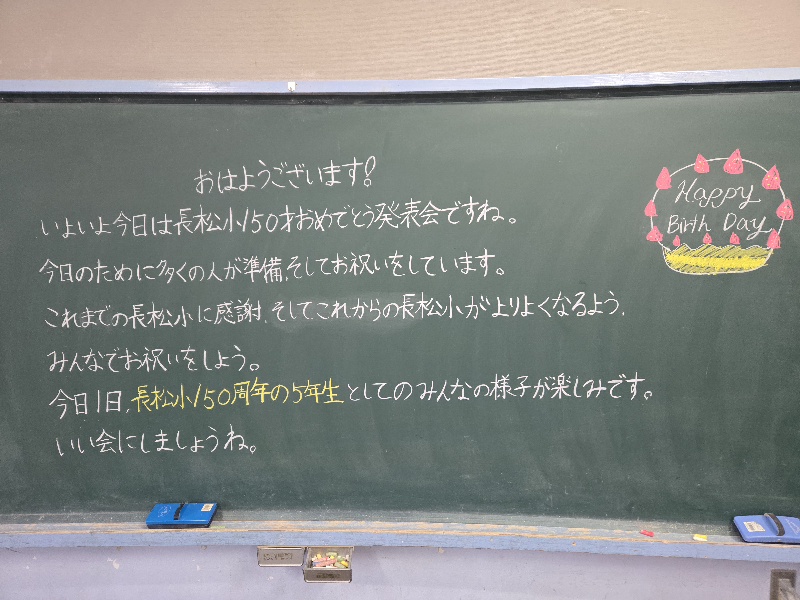 おはようございます!
いよいよ今日は長松小150才おめでとう発表会ですね。
今日のために多くの人が準備、そしてお祝いをしています。
これまでの長松小に感謝、そして、これからの長松小がよりよくなるよう、
みんなでお祝いをしよう。
今日1日、長松小150周年の5年生としてのみんなの様子が楽しみです。
いい会にしましょうね。
Happy
Birth Day